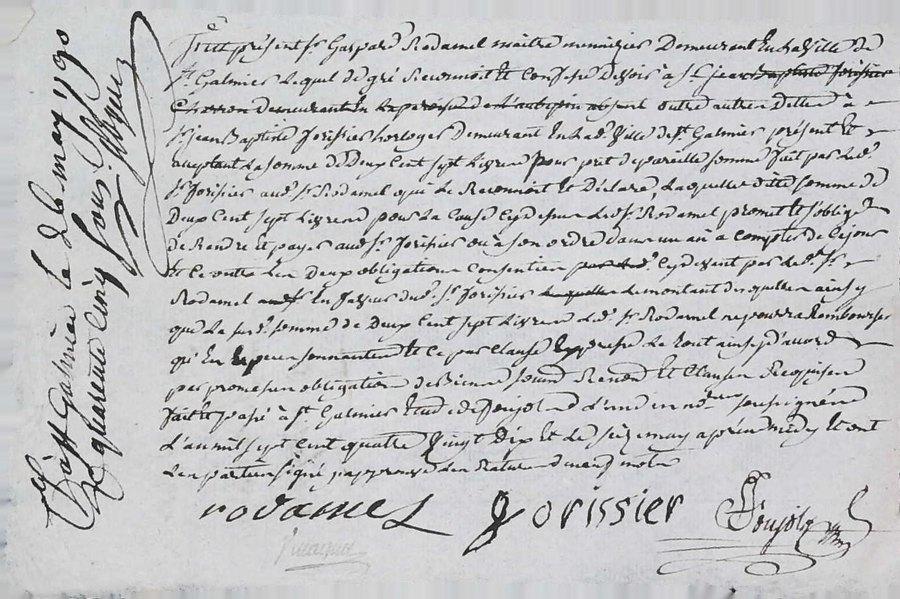 Fut présent sr. Gaspard Rodamel maitre menuizier Demeurant En la Ville de
st. Galmier Lequel de gré Reconnoit Et Confesse Devoir à sr. jean Baptiste Jorissier
Charron Demeurant En La paroisse de l'aubepin absent outre autres Dettes à
sr. jean Baptiste Jorissier horloger demeurant En lad. Ville de st. Galmier présent Et
acceptant La somme de Deux Cent sept Livres pour pret de pareille somme fait par led.
sr. Jorissier aud. sr. Rodamel qui Le Reconnoit Et Déclare, Laquelle dite somme de
Deux Cent sept Livres pour La Cause Cy dessus led. sr. Rodamel promet Et s'oblige
de Rendre Et payer aud. sr. Jorissier ou à son ordre dans un an à compter de Ce jour
Et Ce outre Les Deux obligations Consenties Cy devant par led. sr.
Rodamel En faveur dud. sr. Jorissier montant desquelles ainsy
que La susd. somme de Deux Cent sept Livres led. sr. Rodamel ne pourra Rembourser
qu'En Espèces sonnantes Et Ce par Clause Expresse Le tout ainsy d'accord
par promesses obligation de Biens Renon Et Clauses Requises
fait Et passé à st. Galmier Etude de Ponjol L'un des nores. soussignés
L'an mil sept Cent quatre Vingt Dix Et Le seize may après midy Et ont
Les parties signé j'approuve Les Ratures neuf mots
rodamel Jorissier Ponjol
st Galmier le 26 may 1790
quarente Cinq sous